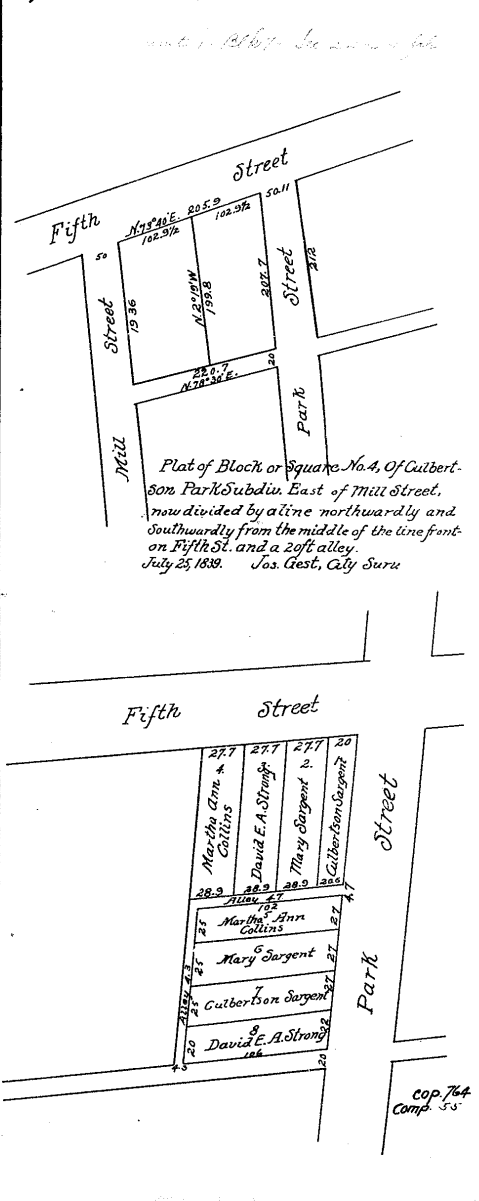 Fifth Street
50
N.73°40'E. 205.9
102.9½ 102.9½
50.11
Street
Mill
1936
N.2°19'W
199.8
207.7
Street
Park
212
220.7
N.78°30'E.
20
Plat of Block or Square No.4, Of Culbert-
son Park Subdiv. East of Mill Street,
now divided by a line northwardly and
Southwardly from the middle of the line front-
on Fifth St. and a 20ft alley.
July 25, 1839. Jos. Gest, City Surv
Fifth Street
27.7 27.7 27.7 20
Martha Ann 4.
Collins
David E.A. Strong 3.
Mary Sargent 2.
Culbertson Sargent
Street
Park
28.9 28.9 28.9 20.6
Alley 4.7
4.7
102
25 Martha 5 Ann 27
Collins
25 Mary 6 Sargent 27
Alley 4.3
25 7 27
Culbertson Sargent
20 8 22
David E.A. Strong
106
4.3
20
Cop. 764
Comp. 55